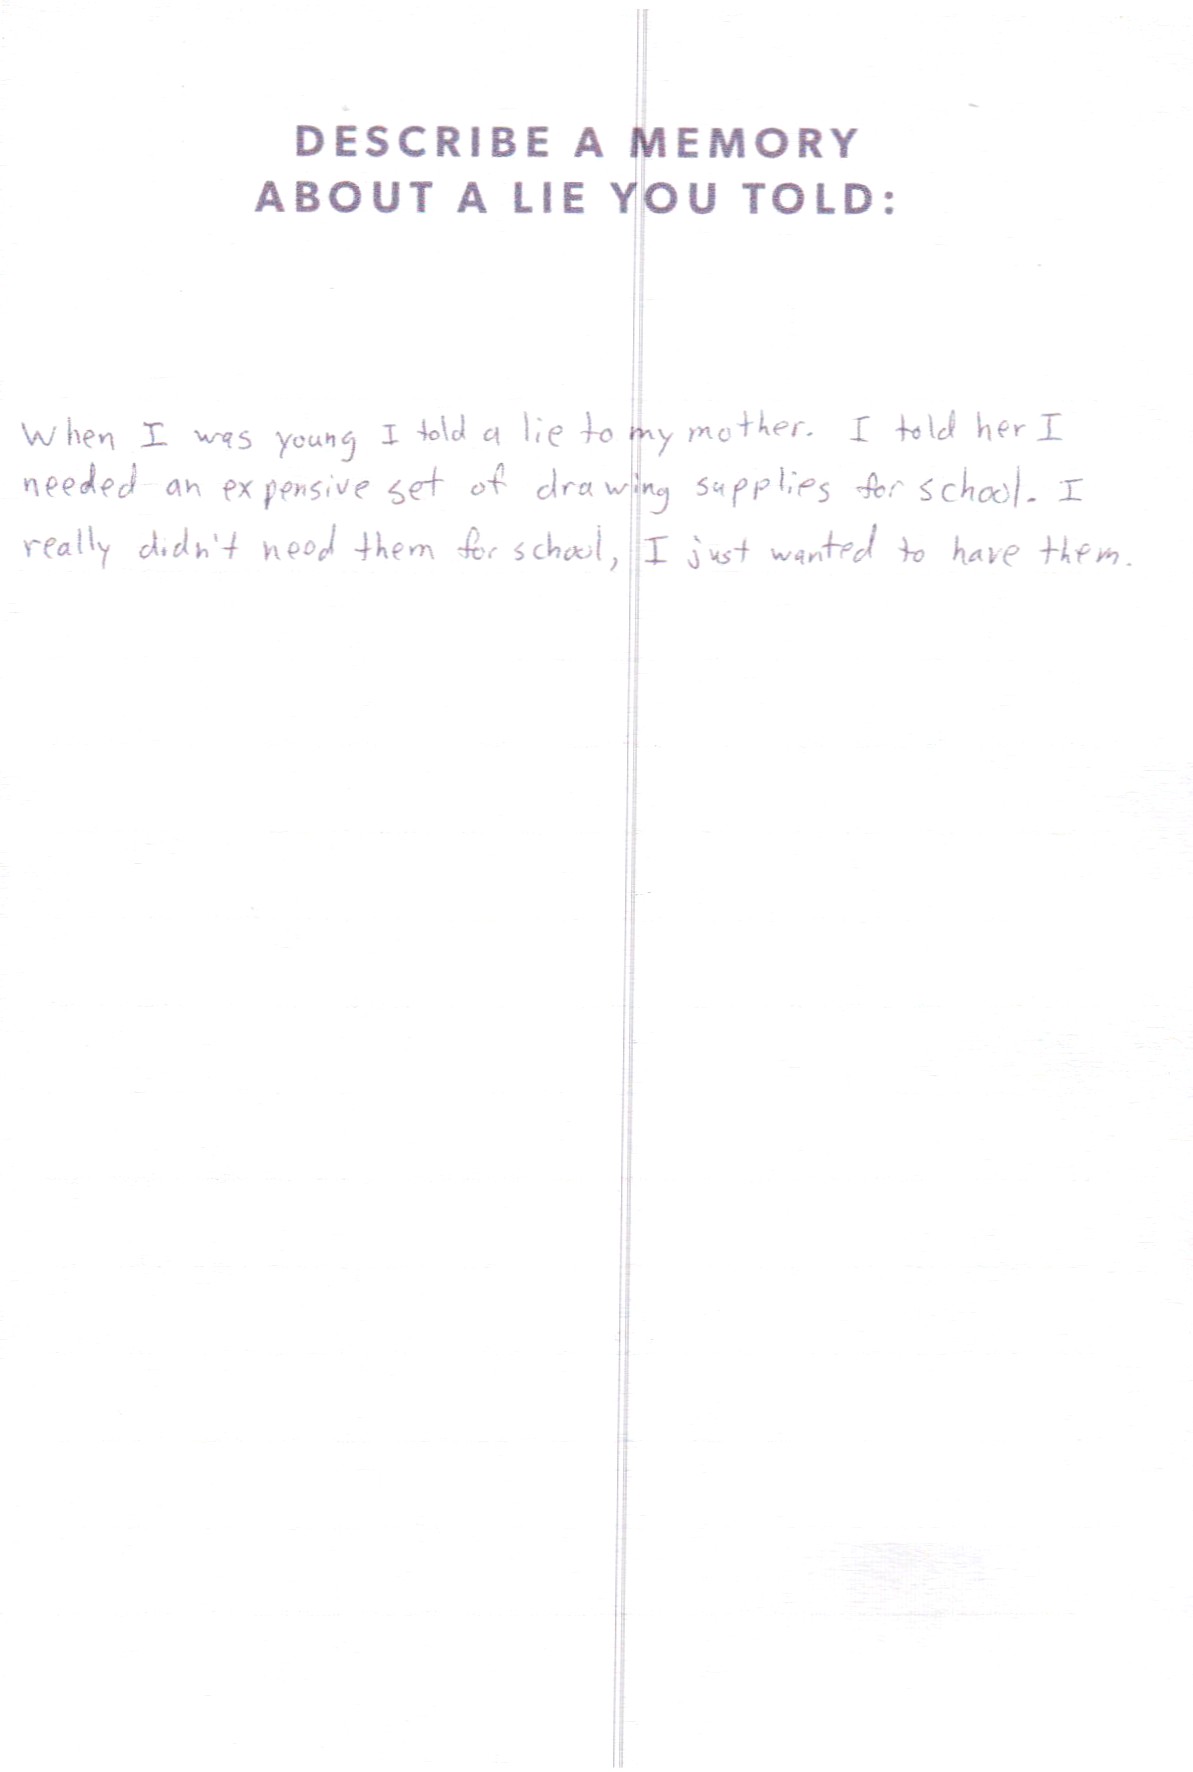 DESCRIBE A MEMORY
ABOUT A LIE YOU TOLD:
When I was young I told a lie to my mother. I told her I
needed an expensive set of drawing supplies for school. I
really didn't need them for school, I just wanted to have them.